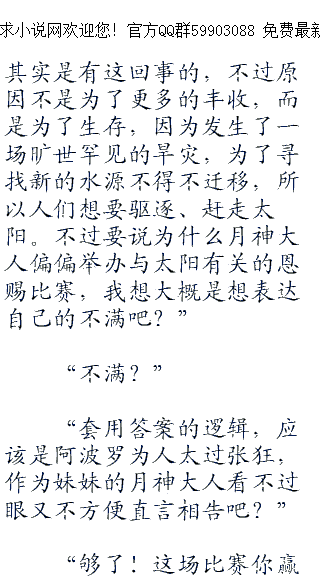 求小说网欢迎您！官方QQ群59903088 免费最新
其实是有这回事的，不过原
因不是为了更多的丰收，而
是为了生存，因为发生了一
场旷世罕见的旱灾，为了寻
找新的水源不得不迁移，所
以人们想要驱逐、赶走太
阳。不过要说为什么月神大
人偏偏举办与太阳有关的恩
赐比赛，我想大概是想表达
自己的不满吧？”
“不满？”
“套用答案的逻辑，应
该是阿波罗为人太过张狂，
作为妹妹的月神大人看不过
眼又不方便直言相告吧？”
“够了！这场比赛你赢